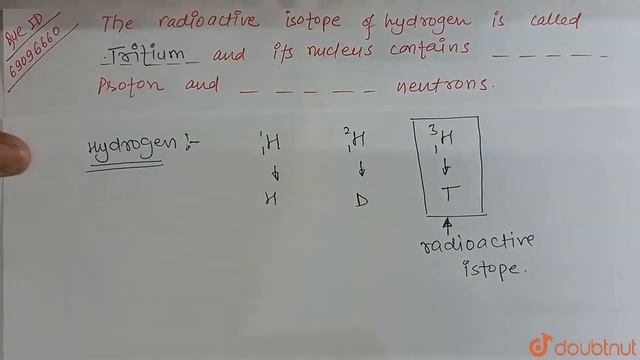 The radioactive isotope of hydrogen is called
Tritium and its nucleus contains _ _ _ _ _
Proton and _ _ _ _ _ neutrons.
Que ID
69096660
Hydrogen :- ¹₁H ²₁H ³₁H
↓ ↓ ↓
H D T
↑
radioactive
istope.
doubtnut